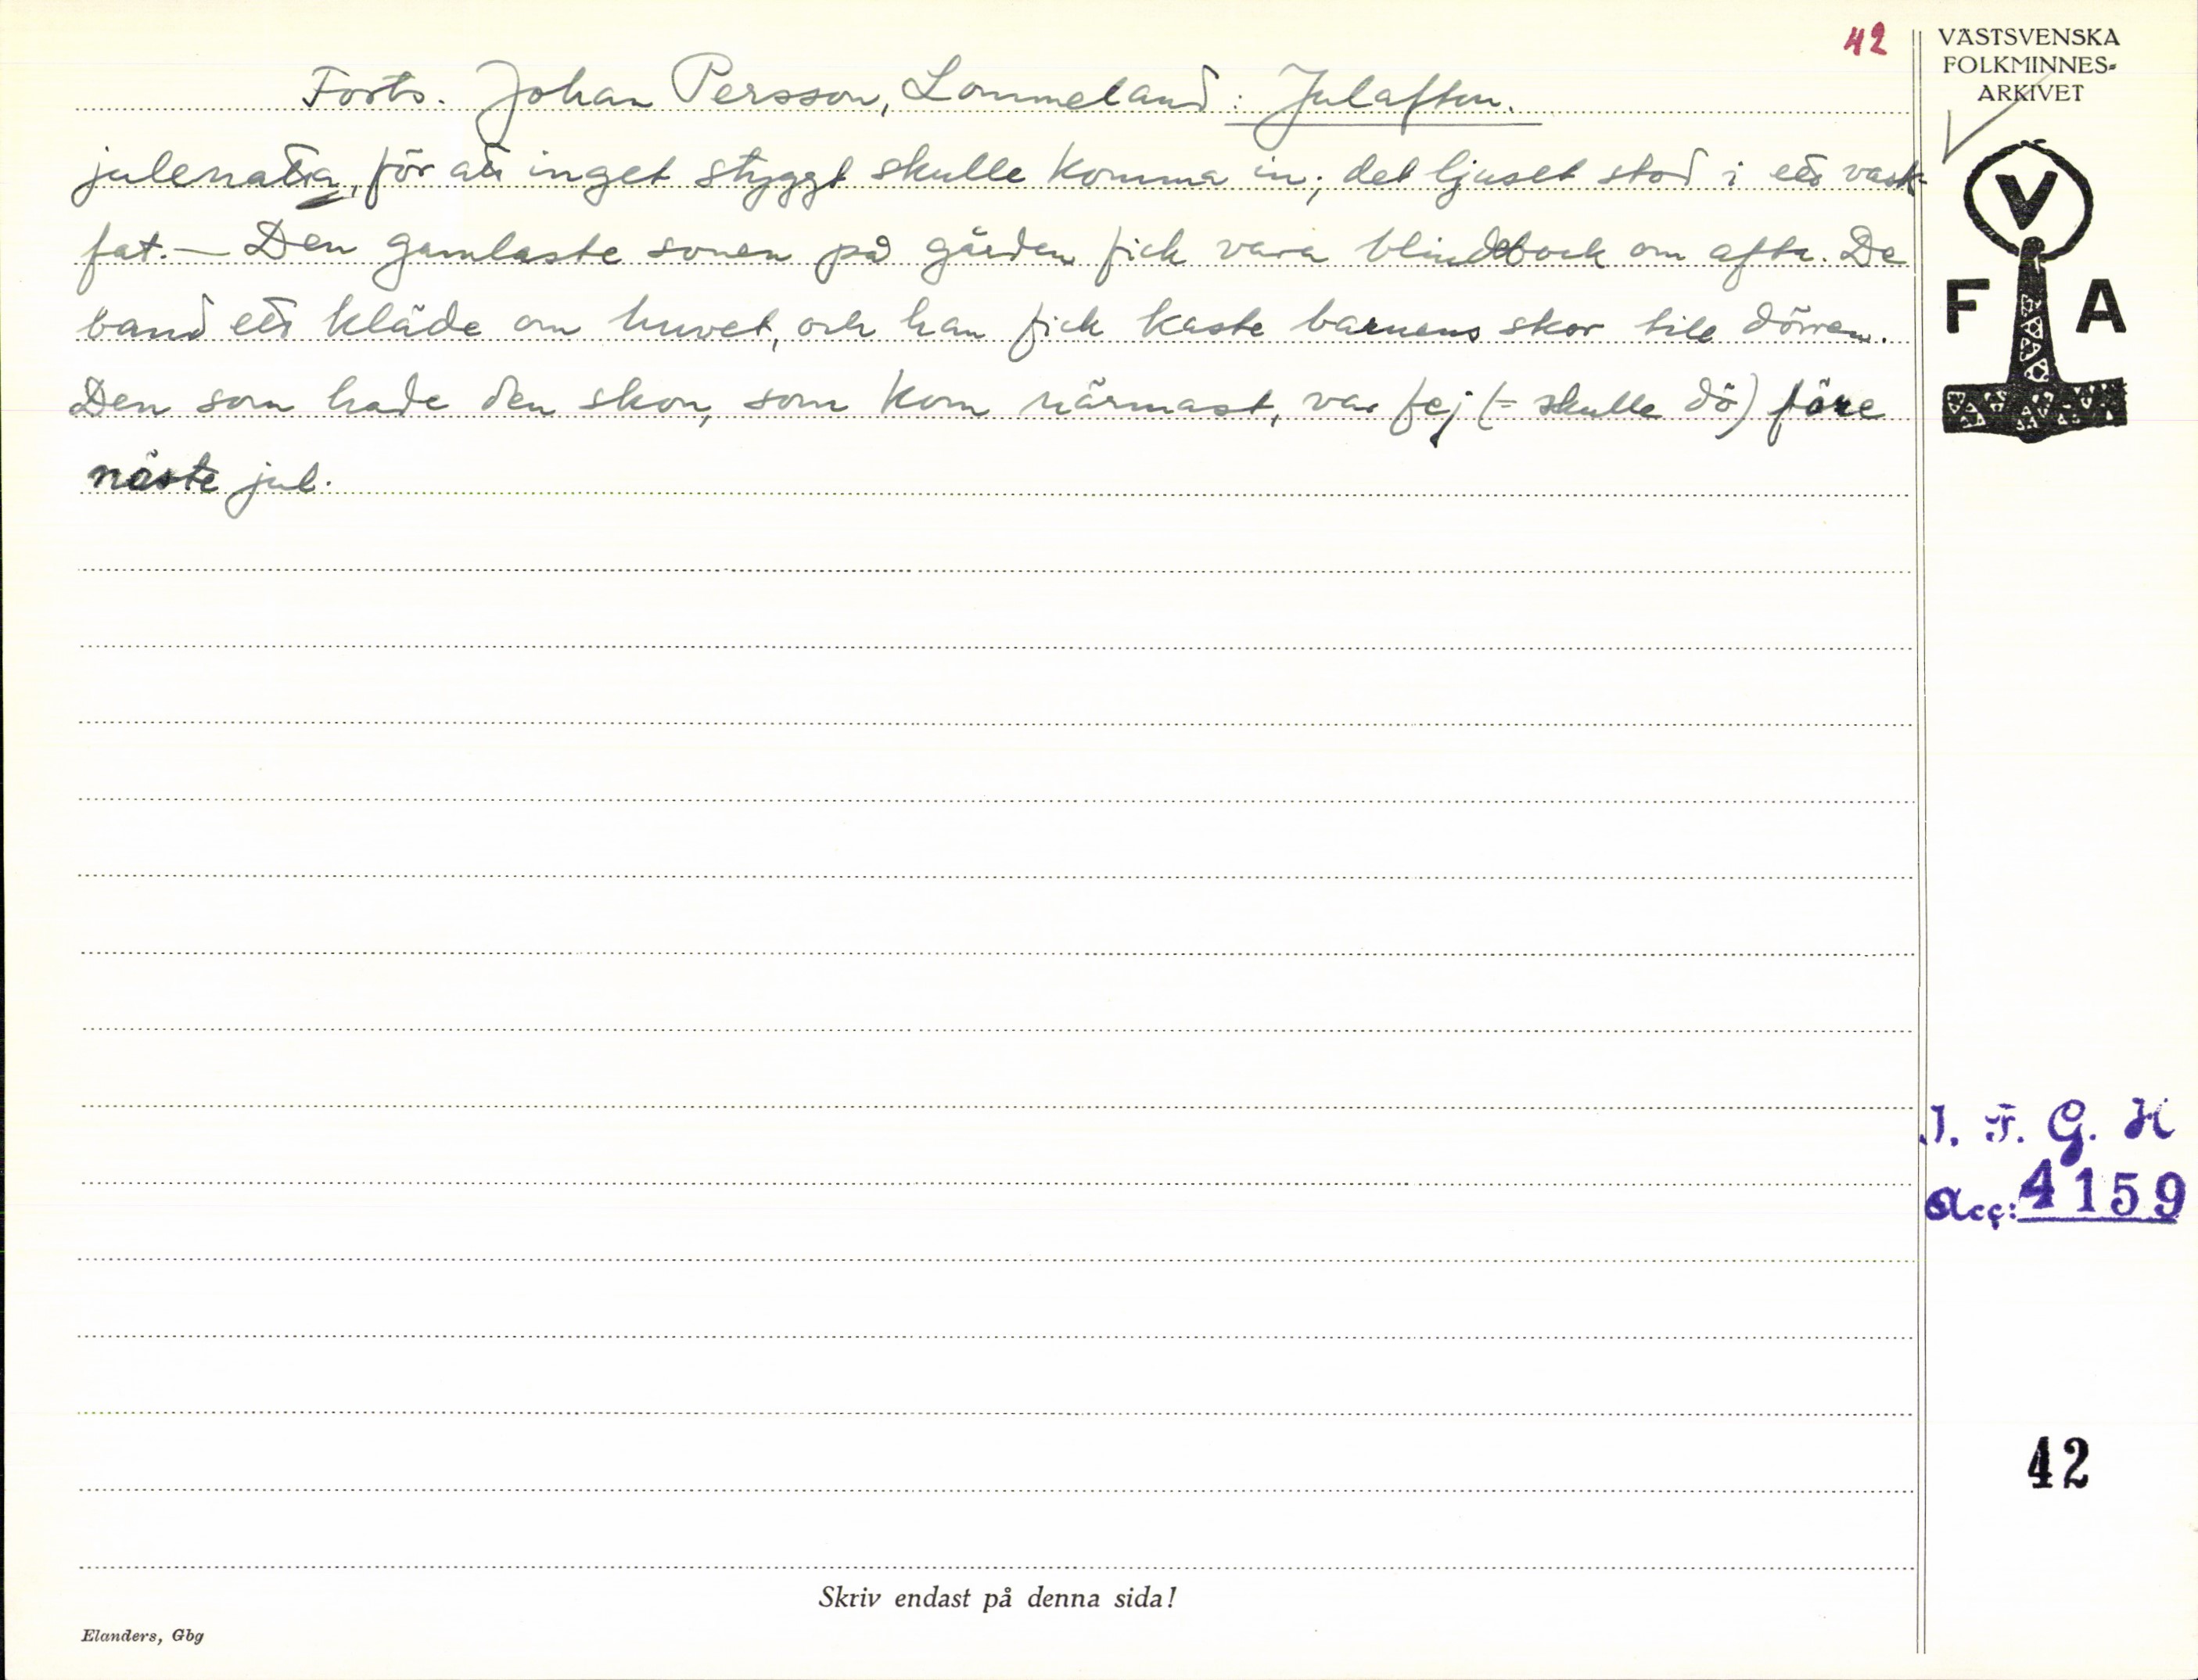 42
VÄSTSVENSKA
FOLKMINNES-
ARKIVET
Forts. Johan Persson, Lommeland: Julaften.
julenatta, för att inget styggt skulle komma in; det ljuset stod i ett vask-
fat. — Den gamlaste sonen på gården fick vara blindbock om afta. De
band ett kläde om huvet, och han fick kaste barnens skor till dörren.
Den som hade den skon, som kom närmast, var fej (= skulle dö) före
näste jul.
V
F A
I. F. G. H
Acc: 4159
42
Skriv endast på denna sida!
Elanders, Gbg